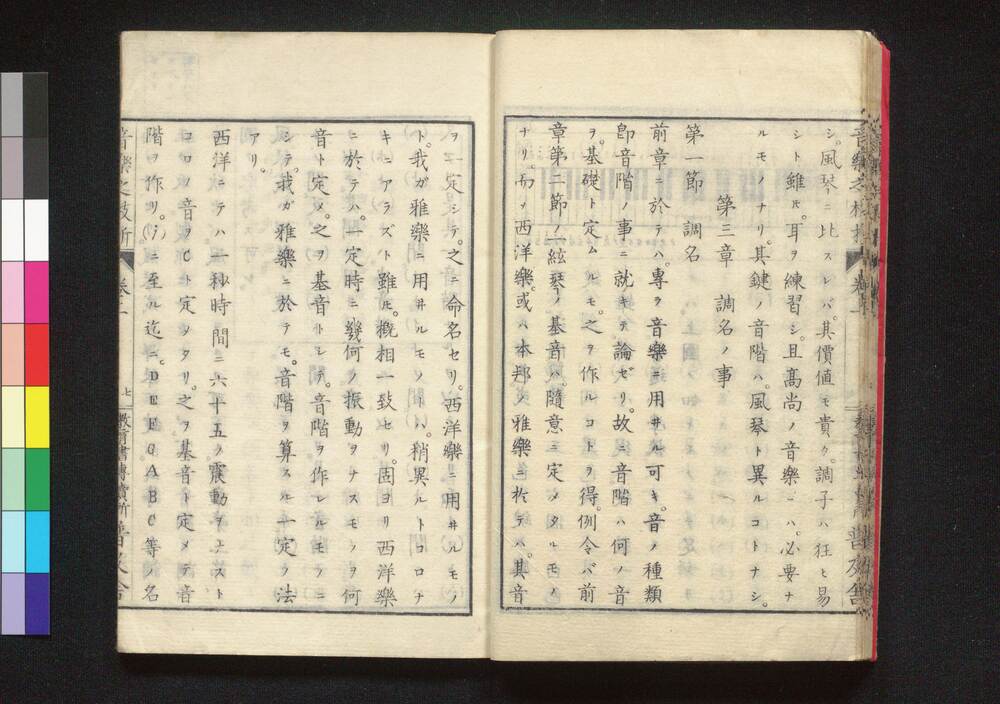 シ。風琴ニ比スレバ。其價値モ貴ク。調子ハ狂ヒ易
シト雖𪜈。耳ヲ練習シ。且高尚ノ音樂ニハ。必要ナ
ルモノナリ。其鍵ノ音階ハ。風琴ト異ルコトナシ。
第三章 調名ノ事
第一節 調名
前章ニ於テハ。專ヲ音樂ニ用ヰル可キ。音ノ種類
卽音階ノ事ニ就キテ。論ゼリ。故ニ音階ハ何ノ音
ヲ。基礎ト定ムルモ。之ヲ作ルコトヲ得。例令バ前
章第二節ノ絃琴ノ基音ハ。隨意ニ定メタルモノ
ナリ。而ノ西洋樂。或ハ本邦ノ雅樂ニ於テハ。其音
ヲ一定シテ。之ニ命名セリ。西洋樂ニ用ヰルモノ
ト。我ガ雅樂ニ用ヰルモノトハ。稍異ルトコロナ
キニアラズト雖𪜈。概相一致セリ。固ヨリ西洋樂
ニ於テハ。一定時ニ幾何ノ振動ヲナスモノヲ何
音ト定メ。之ヲ基音トシテ。音階ヲ作レルモノニ
シテ。我ガ雅樂ニ於テモ。音階ヲ算スル一定ノ法
アリ。
西洋ニテハ一秒時間ニ六十五ノ震動ヲナスト
コロノ音ヲCト定メタリ。之ヲ基音ト定メテ音
階ヲ作リ。ニ至ル迄ニ。DEFGABC等ノ名
音樂之枝折 卷下 七 敎育書專賣所 普及舍